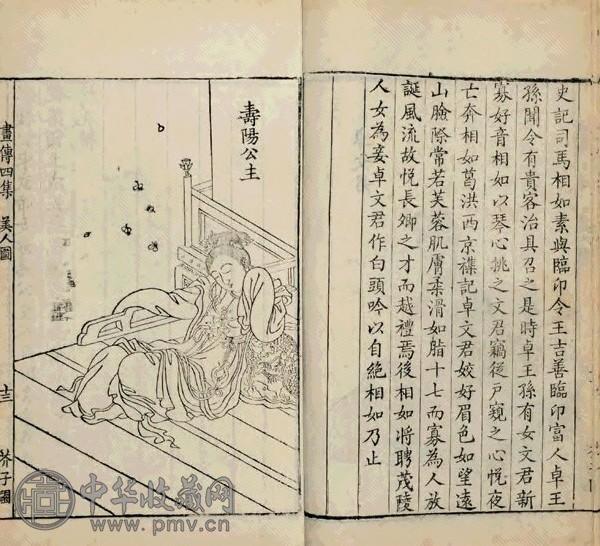 史記司馬相如素與臨卭令王吉善臨卭富人卓王
孫聞令有貴客治具召之是時卓王孫有女文君新
寡好音相如以琴心挑之文君竊從戶窺之心悅夜
亡奔相如葛洪西京襍記卓文君姣好眉色如望遠
山臉際常若芙蓉肌膚柔滑如脂十七而寡為人放
誕風流故悅長卿之才而越禮焉後相如將聘茂陵
人女為妾卓文君作白頭吟以自絶相如乃止
壽陽公主
畫傳四集 美人圖
十三
芥子園
中华收藏网
www.pmv.cn